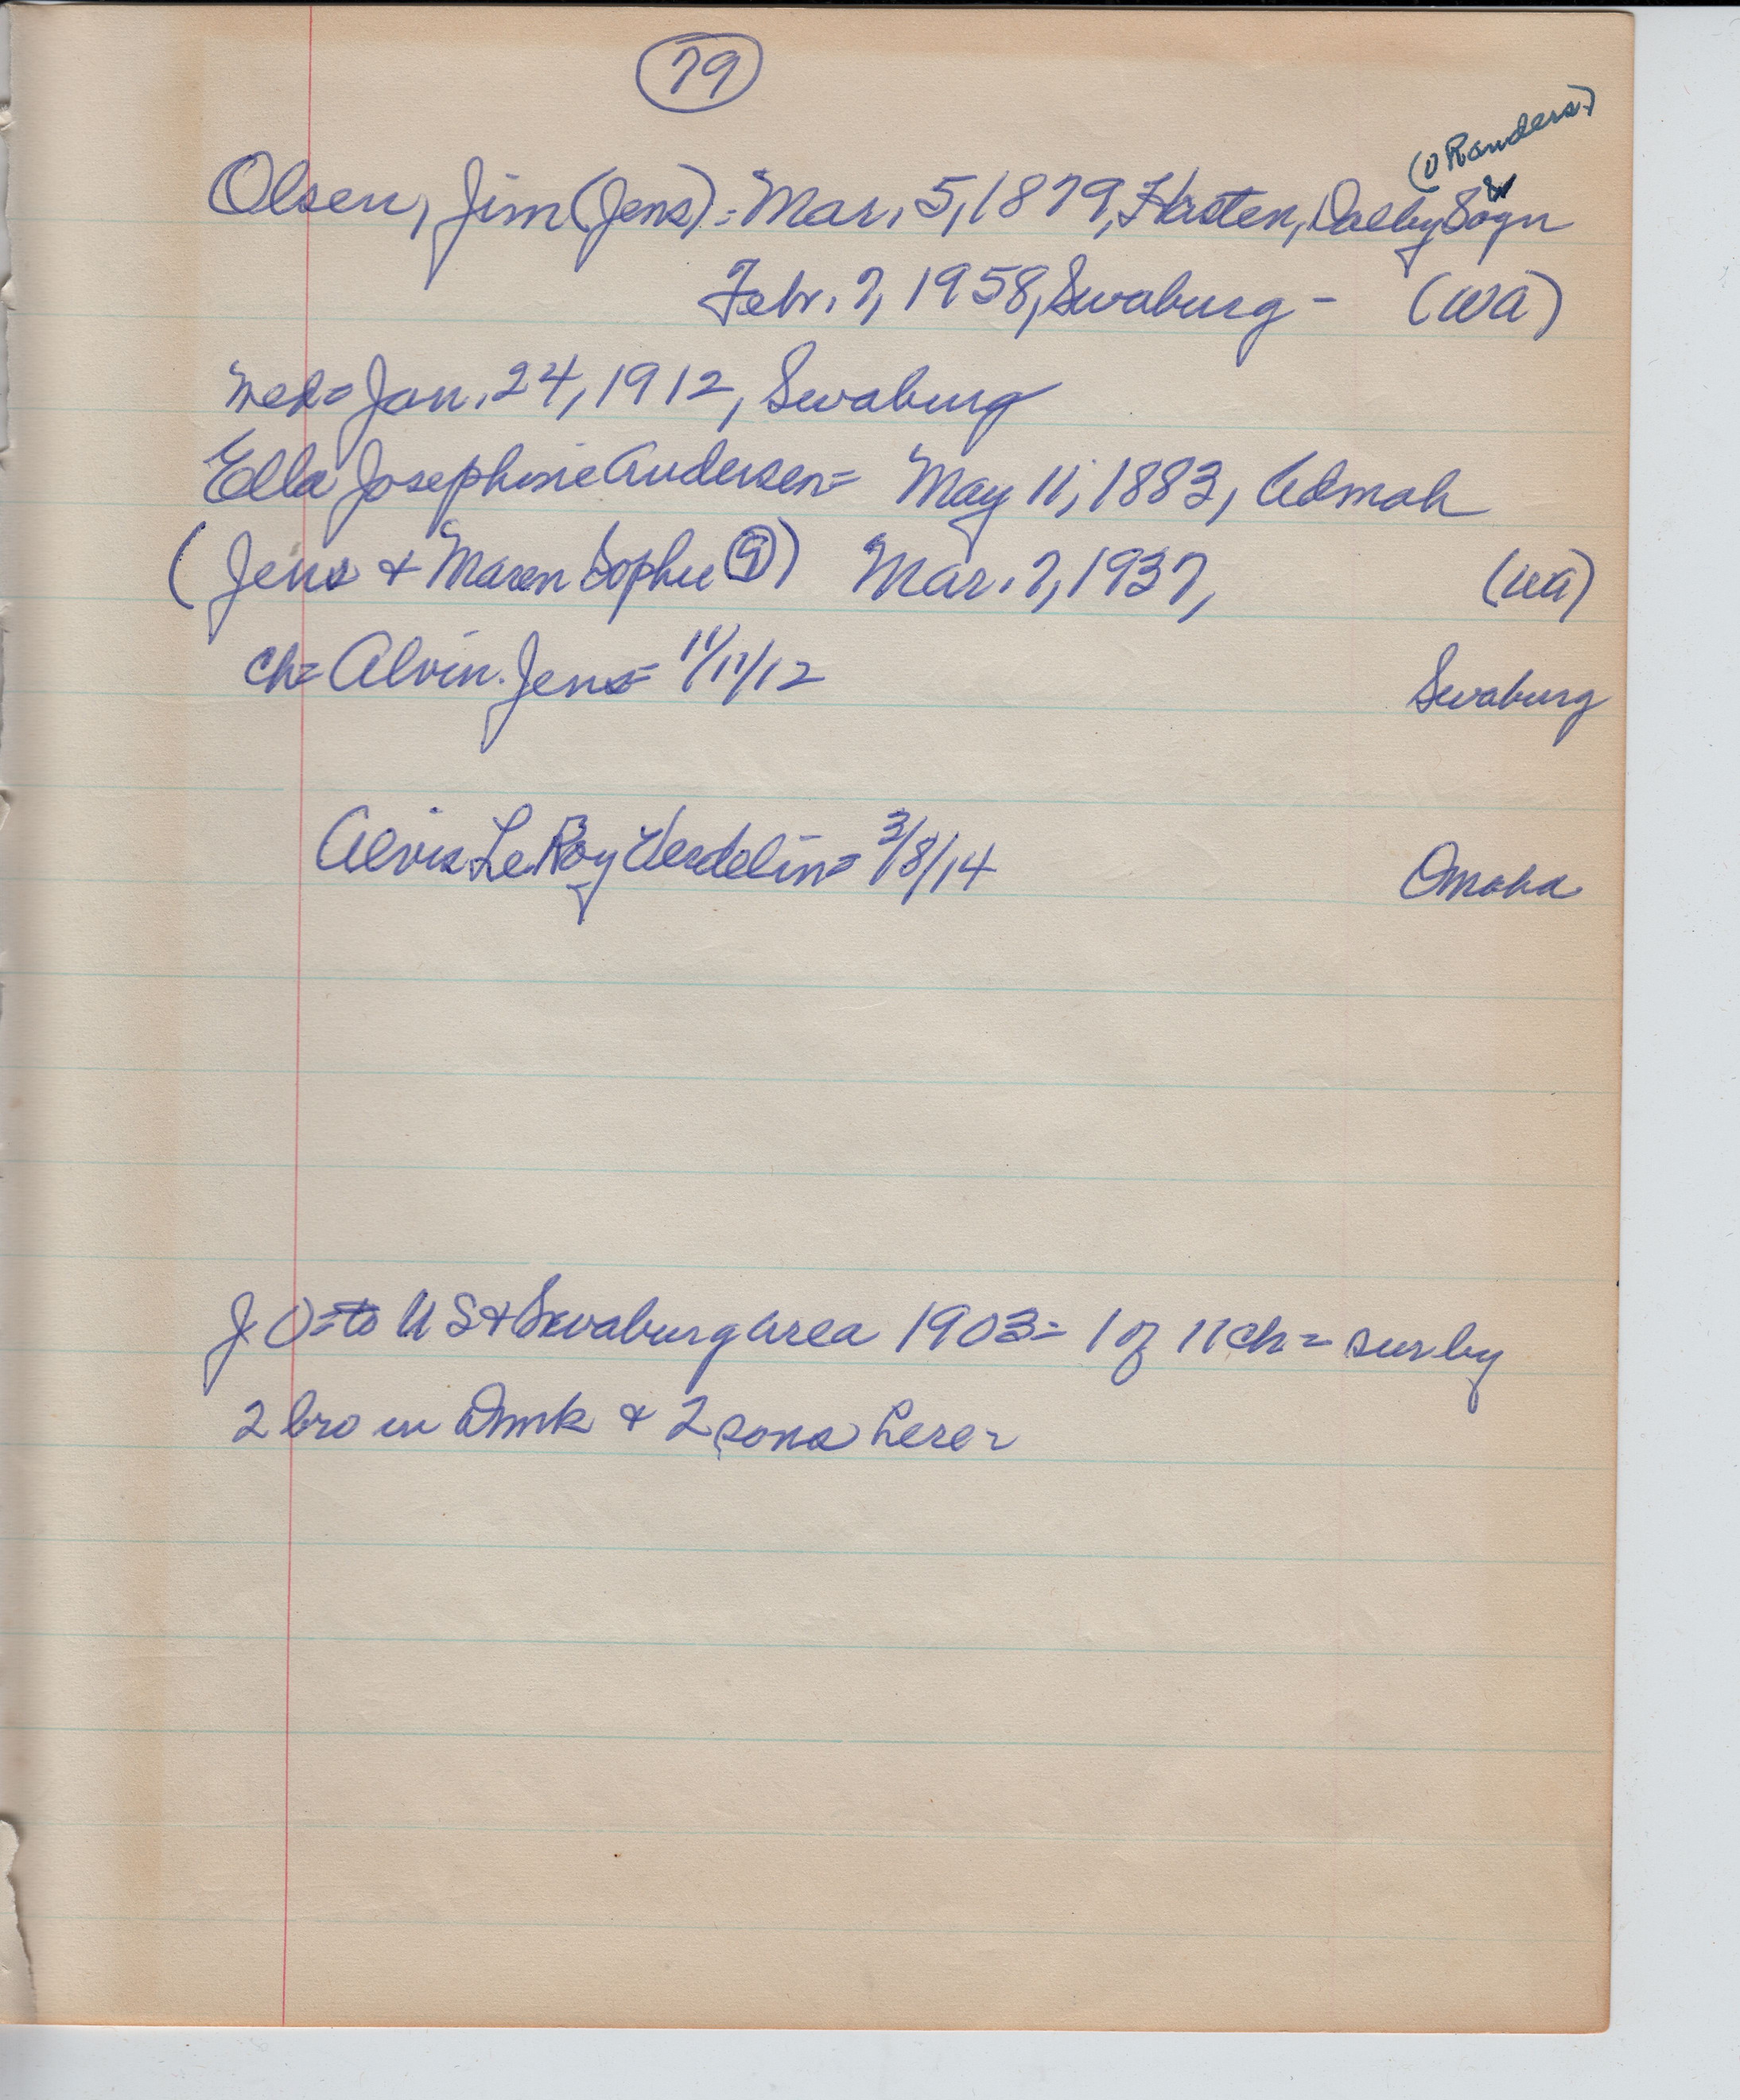 79
(v Randers)
Olsen, Jim (Jens) = Mar. 5, 1879, Dalby Sogn
Febr. 7, 1958, Swaburg - (WA)
med = Jan. 24, 1912, Swaburg
Ella Josephine Andersen = May 11, 1883, Admah
(Jens & Maren Sophie 9) Mar. 7, 1937, (WA)
ch = Alvin Jens = 11/11/12 Swaburg
Alvis LeRoy = 3/8/14 Omaha
J O = to U S & Swaburg area 1903 = 1 of 11 ch = sur by
2 bro in Dnmk & 2 sons here =